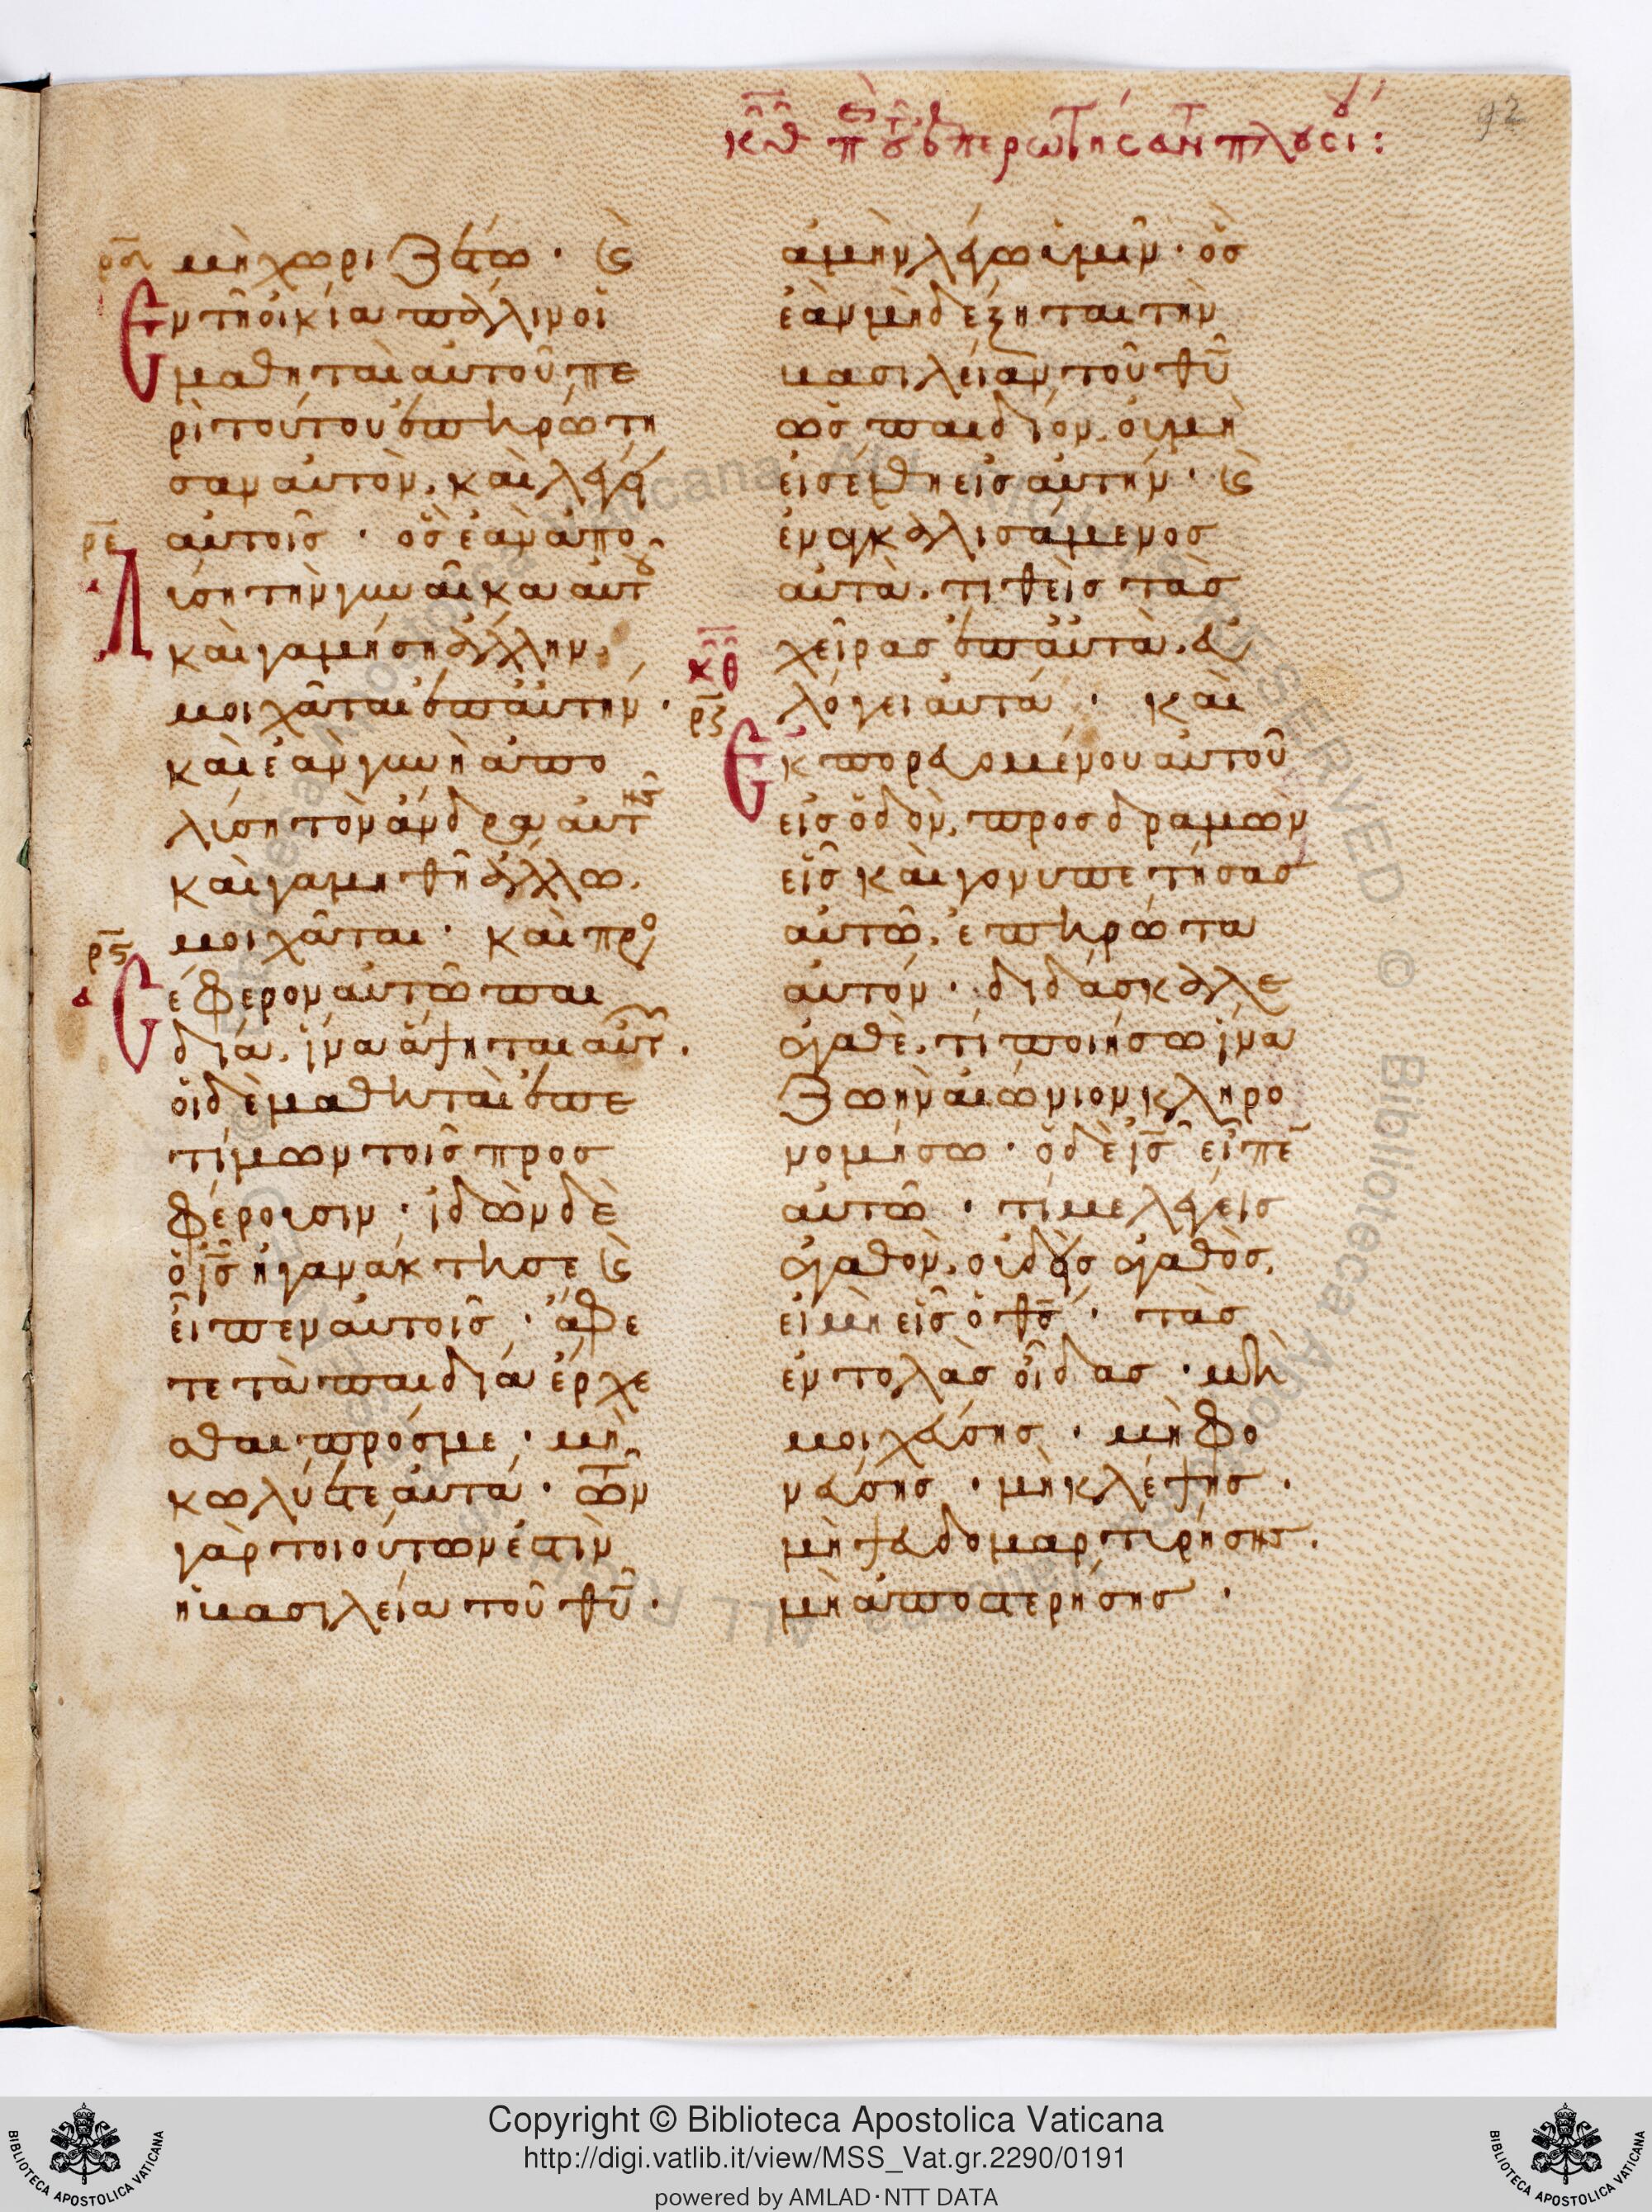 92
μὴ χωριζέτω · καὶ
Ἐν τῆ οἰκία πάλιν οἱ
μαθηταὶ αὐτοῦ πε
ρὶ τούτου ἐπηρώτη
σαν αὐτὸν, καὶ λέγει
αὐτοῖς · ὃς ἐὰν ἀπο
Λύση τὴν γυναῖκα αὐτοῦ
καὶ γαμήση ἄλλην,
μοιχᾶται ἐπ' αὐτήν ·
καὶ ἐὰν γυνὴ ἀπο
λύση τὸν ἄνδρα αὐτῆς
καὶ γαμηθῆ ἄλλω,
μοιχᾶται · καὶ προσ
Ἐέφερον αὐτῶ παι
δία, ἵνα ἅψηται αὐτῶν.
οἱ δὲ μαθηταὶ ἐπε
τίμων τοῖς προσ
φέρουσιν · ἰδὼν δὲ
ὁ ις ἠγανάκτησε καὶ
εἶπεν αὐτοῖς · ἄφε
τε τὰ παιδία ἔρχε
σθαι πρός με · μὴ
κωλύετε αὐτά · τῶν
γὰρ τοιούτων ἐστὶν
ἡ βασιλεία τοῦ θῦ ·
ἀμὴν λέγω ὑμῖν · ὃς
ἐὰν μὴ δέξηται τὴν
βασιλείαν τοῦ θῦ
ὡς παιδίον, οὐ μὴ
εἰσέλθη εἰς αὐτήν · καὶ
ἐναγκαλισάμενος
αὐτὰ, τιθεὶς τὰς
χεῖρας ἐπ' αὐτὰ, εὐ
λόγει αὐτά · καὶ
Ἐκπορευομένου αὐτοῦ
εἰς ὁδὸν, προσδραμὼν
εἷς καὶ γονυπετήσας
αὐτῶ, ἐπηρώτα
αὐτόν · διδάσκαλε
ἀγαθὲ, τί ποιήσω ἵνα
ζωὴν αἰώνιον κληρο
νομήσω · ὁ δὲ ις εἶπεν
αὐτῶ · τί με λέγεις
ἀγαθὸν, οὐδεὶς ἀγαθὸς,
εἰ μὴ εἷς ὁ θς · τὰς
ἐντολὰς οἶδας · μὴ
μοιχεύσης · μὴ φο
νεύσης · μὴ κλέψης ·
μὴ ψευδομαρτυρήσης.
μὴ ἀποστερήσης ·
Copyright © Biblioteca Apostolica Vaticana
http://digi.vatlib.it/view/MSS_Vat.gr.2290/0191
powered by AMLAD·NTT DATA
BIBLIOTECA APOSTOLICA VATICANA
BIBLIOTECA APOSTOLICA VATICANA